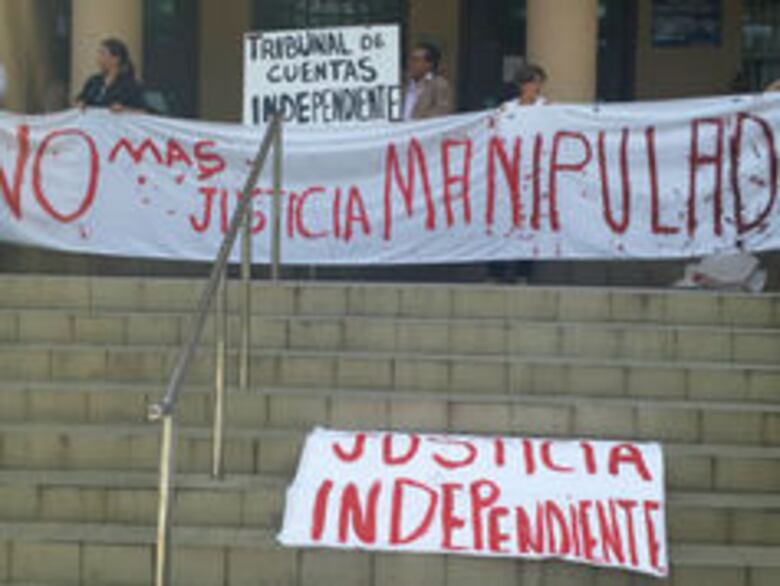 TRIBUNAL DE
CUENTAS
INDEPENDIENTE
NO MAS
JUSTICIA MANIPULAD
JUSTICIA
INDEPENDIENTE